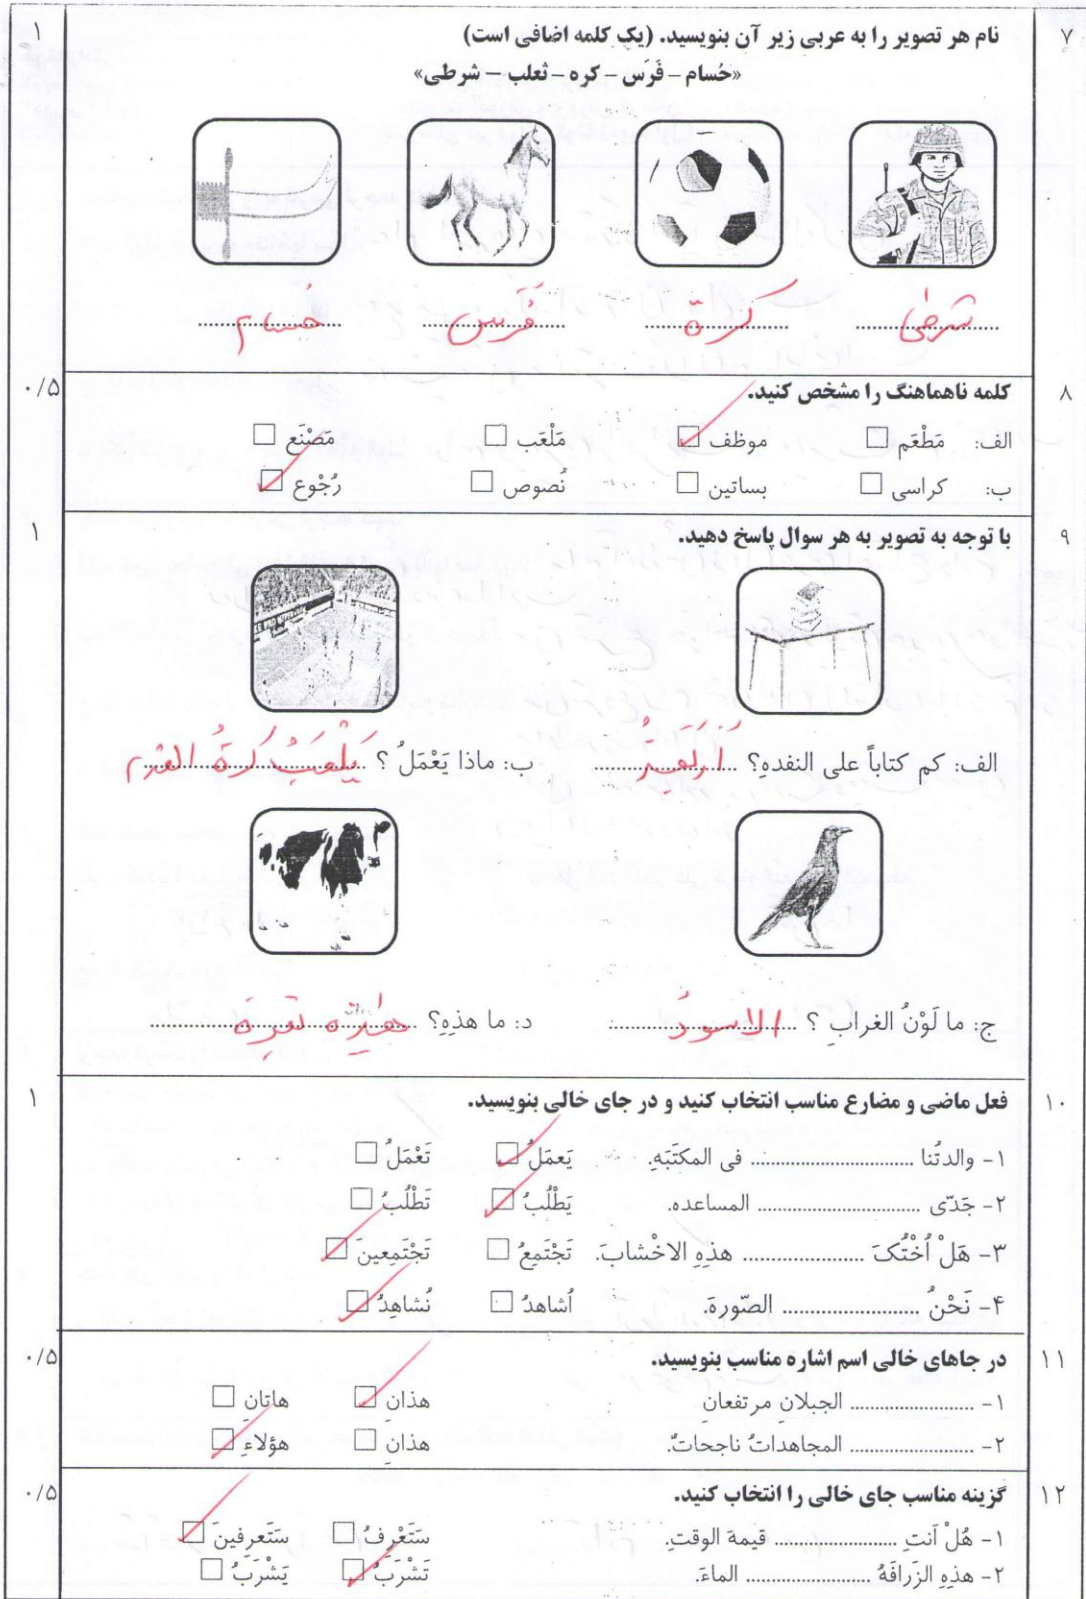 ۷ نام هر تصویر را به عربی زیر آن بنویسید. (یک کلمه اضافی است) ۱
«حُسام – فَرَس – کره – ثعلب – شرطی»
شرطی کرة فَرَس حُسام
۸ کلمه ناهماهنگ را مشخص کنید. ۰/۵
الف: مَطْعَم □ موظف □ مَلْعَب □ مَصْنَع □
ب: کراسی □ بساتین □ نُصوص □ رُجْوع □
۹ با توجه به تصویر به هر سوال پاسخ دهید. ۱
الف: کم کتاباً علی النفدهِ؟ ب: ماذا یَعْمَلُ ؟ یَلْعَبُ کرةُ القدم
ج: ما لَوْنُ الغرابِ ؟ الاسودُ د: ما هذهِ؟ هذِه بَقَرة
۱۰ فعل ماضی و مضارع مناسب انتخاب کنید و در جای خالی بنویسید. ۱
۱- والدتُنا .................... فی المکتَبَهِ. یَعمَلُ □ تَعْمَلُ □
۲- جَدّی .................... المساعده. یَطْلُبُ □ تَطْلُبُ □
۳- هَلْ اُخْتُکَ .................... هذِهِ الاخْشابَ. تَجْتَمِعُ □ تَجْتَمِعینَ □
۴- نَحْنُ .................... الصّورهَ. اُشاهدُ □ نُشاهِدُ □
۱۱ در جاهای خالی اسم اشاره مناسب بنویسید. ۰/۵
۱- .................... الجبلانِ مرتفعانِ هذانِ □ هاتانِ □
۲- .................... المجاهداتُ ناجحاتٌ. هذانِ □ هؤلاءِ □
۱۲ گزینه مناسب جای خالی را انتخاب کنید. ۰/۵
۱- هُلْ اَنتِ .................... قیمهَ الوقتِ. سَتَعْرِفُ □ سَتَعرفینَ □
۲- هذِهِ الزَرافَهُ .................... الماءَ. تَشْرَبُ □ یَشْرَبُ □